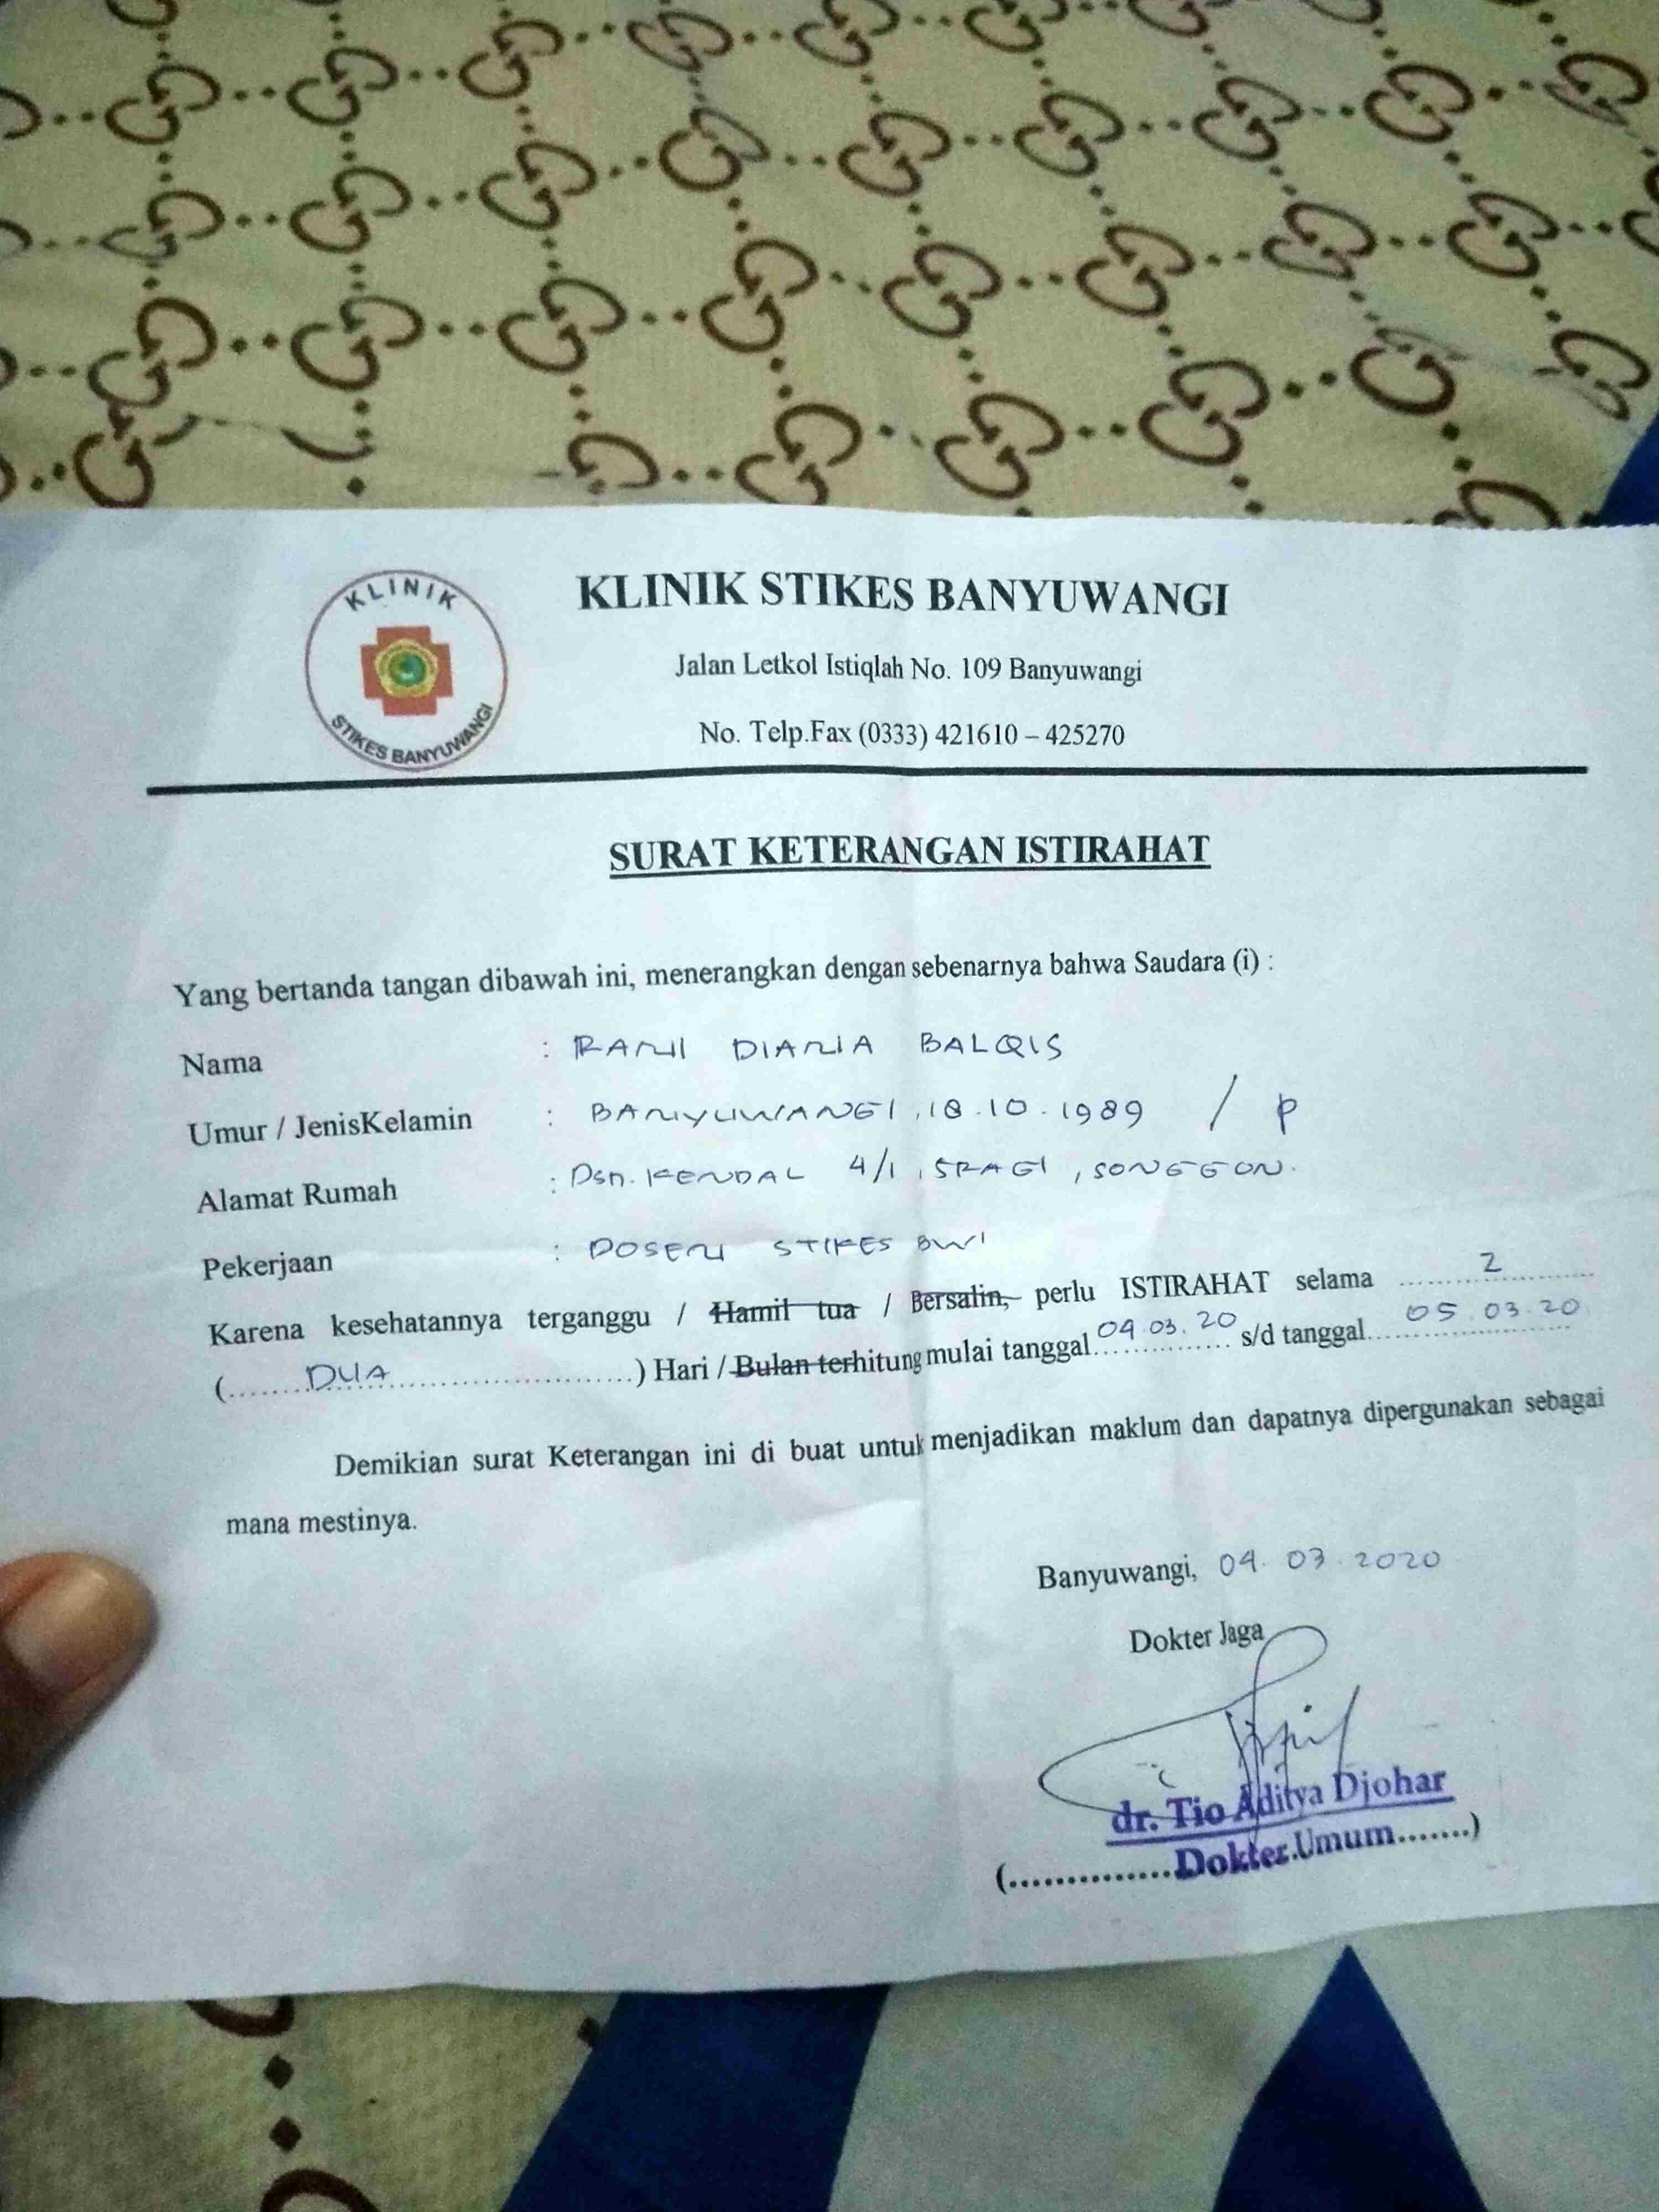 KLINIK
STIKES BANYUWANGI
KLINIK STIKES BANYUWANGI
Jalan Letkol Istiqlah No. 109 Banyuwangi
No. Telp.Fax (0333) 421610 – 425270
SURAT KETERANGAN ISTIRAHAT
Yang bertanda tangan dibawah ini, menerangkan dengan sebenarnya bahwa Saudara (i) :
Nama : RANI DIANA BALQIS
Umur / JenisKelamin : BANYUWANGI, 18.10.1989 / P
Alamat Rumah : Dsn. KENDAL 4/1, SRAGI, SONGGON.
Pekerjaan : DOSEN STIKES BWI
Karena kesehatannya terganggu / Hamil tua / Bersalin, perlu ISTIRAHAT selama 2
(........DUA........) Hari / Bulan terhitung mulai tanggal 04.03.20 s/d tanggal 05.03.20
Demikian surat Keterangan ini di buat untuk menjadikan maklum dan dapatnya dipergunakan sebagai
mana mestinya.
Banyuwangi, 04.03.2020
Dokter Jaga
dr. Tio Aditya Djohar
(...............Dokter Umum.......)